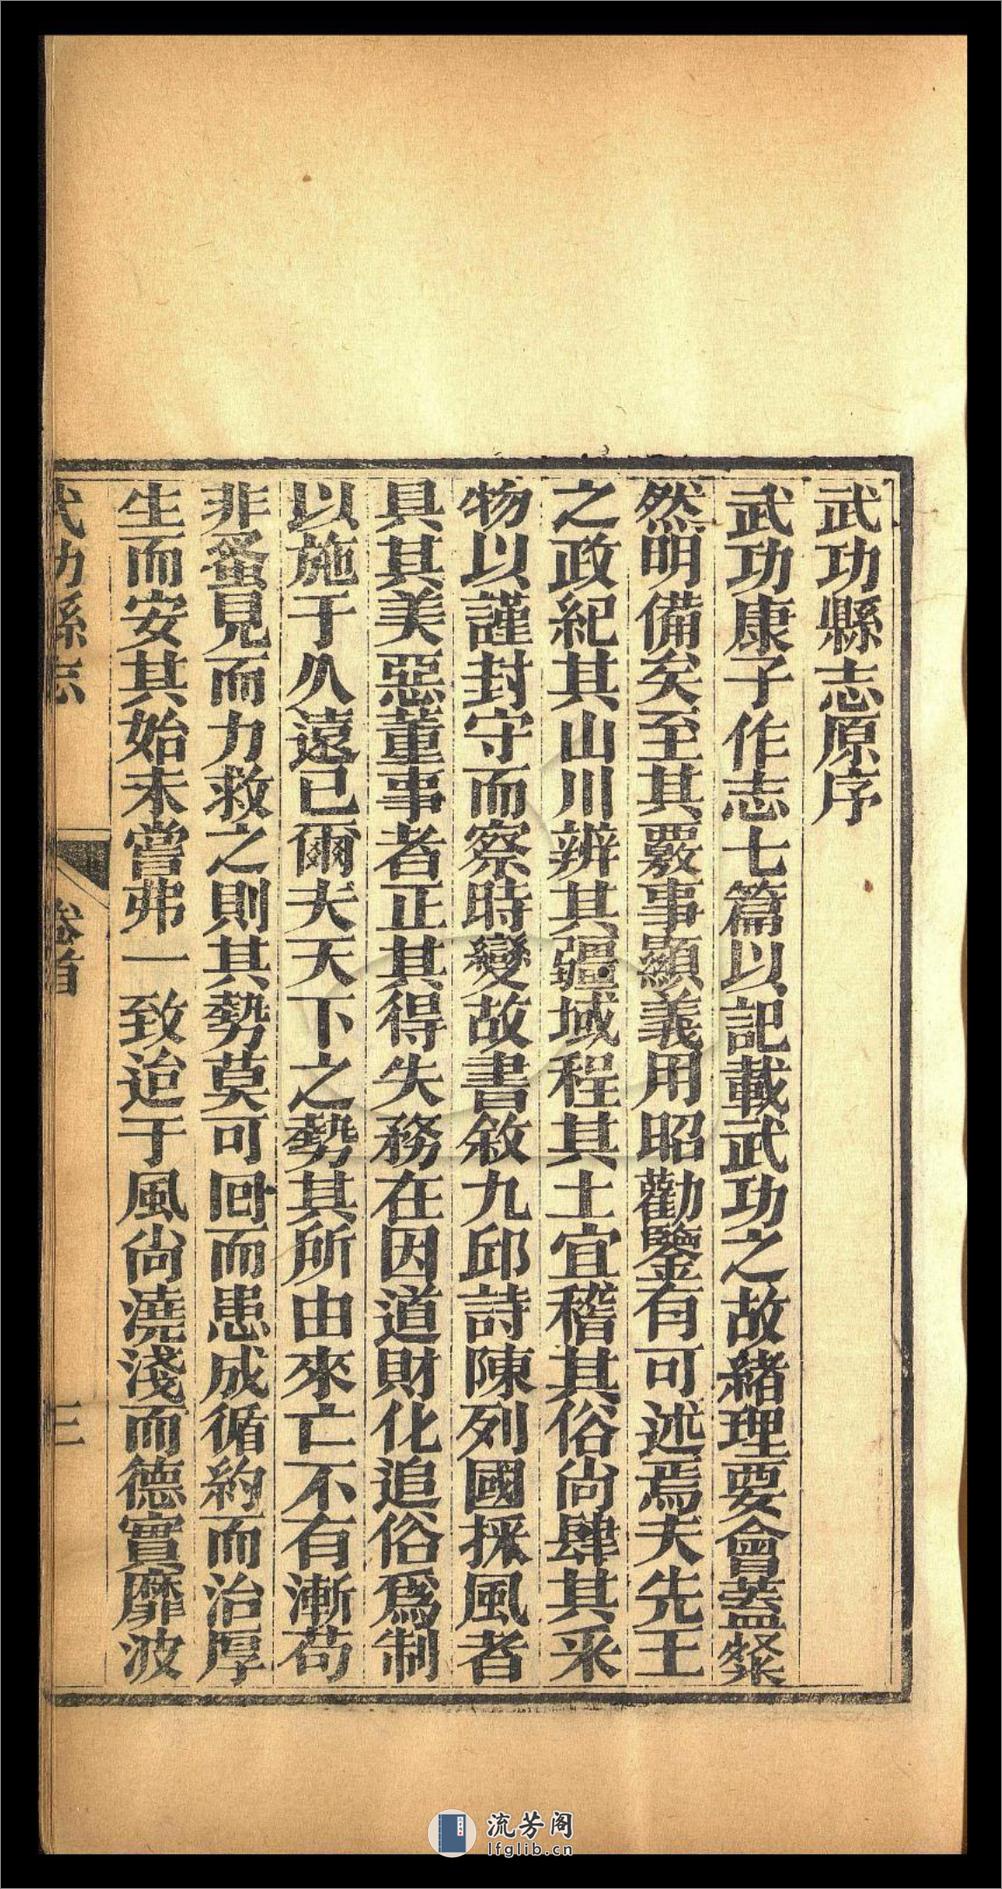 武功縣志原序
武功康子作志七篇以記載武功之故緒理要會蓋粲
然明備矣至其覈事顯義用昭勸鑒有可述焉夫先王
之政紀其山川辨其疆域程其土宜稽其俗尚肆其采
物以謹封守而察時變故書敘九邱詩陳列國採風者
具其美惡董事者正其得失務在因道財化追俗爲制
以施于久遠已爾夫天下之勢其所由來亡不有漸苟
非蚤見而力救之則其勢莫可回而患成循約而治厚
生而安其始未嘗弗一致迨于風尚澆淺而德實靡波
武功縣志
卷首
三
流芳阁
lfglib.cn